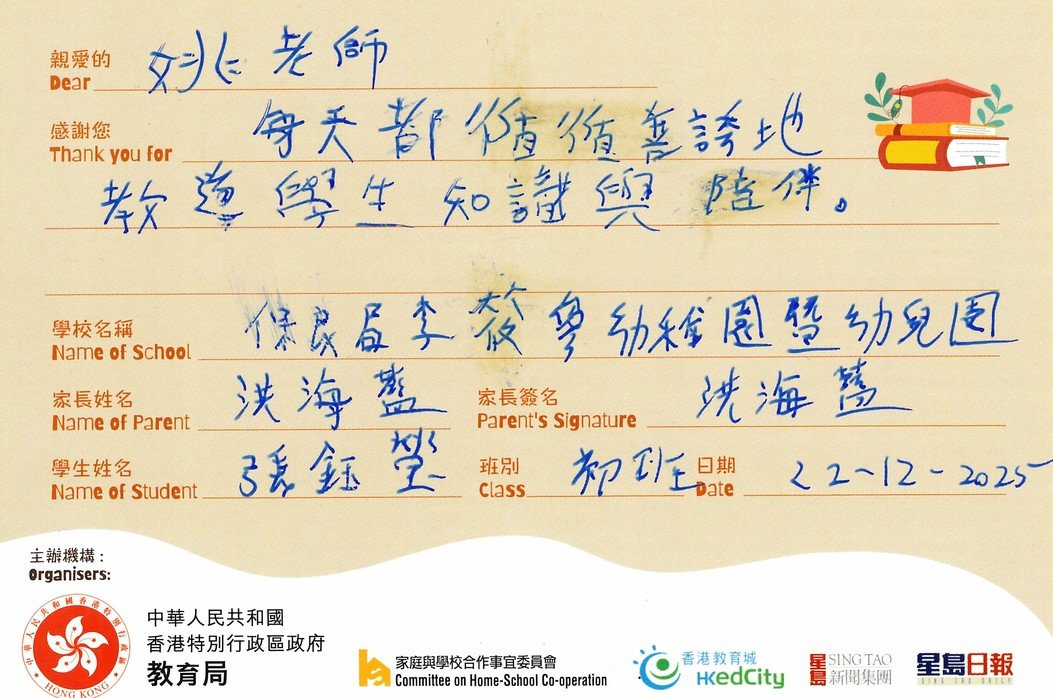 親愛的
Dear 姚老師
感謝您
Thank you for 每天都循循善誘地
教導學生知識與陪伴。
學校名稱
Name of School 保良局李筱參幼稚園暨幼兒園
家長姓名
Name of Parent 洪海藍
家長簽名
Parent's Signature 洪海藍
學生姓名
Name of Student 張鈺瑩
班別
Class 初班
日期
Date 22-12-2025
主辦機構：
Organisers:
中華人民共和國香港特別行政區政府
HONG KONG
中華人民共和國
香港特別行政區政府
教育局
家庭與學校合作事宜委員會
Committee on Home-School Co-operation
香港教育城
HKedCity
星島 SING TAO
新聞集團
星島日報
SING TAO DAILY